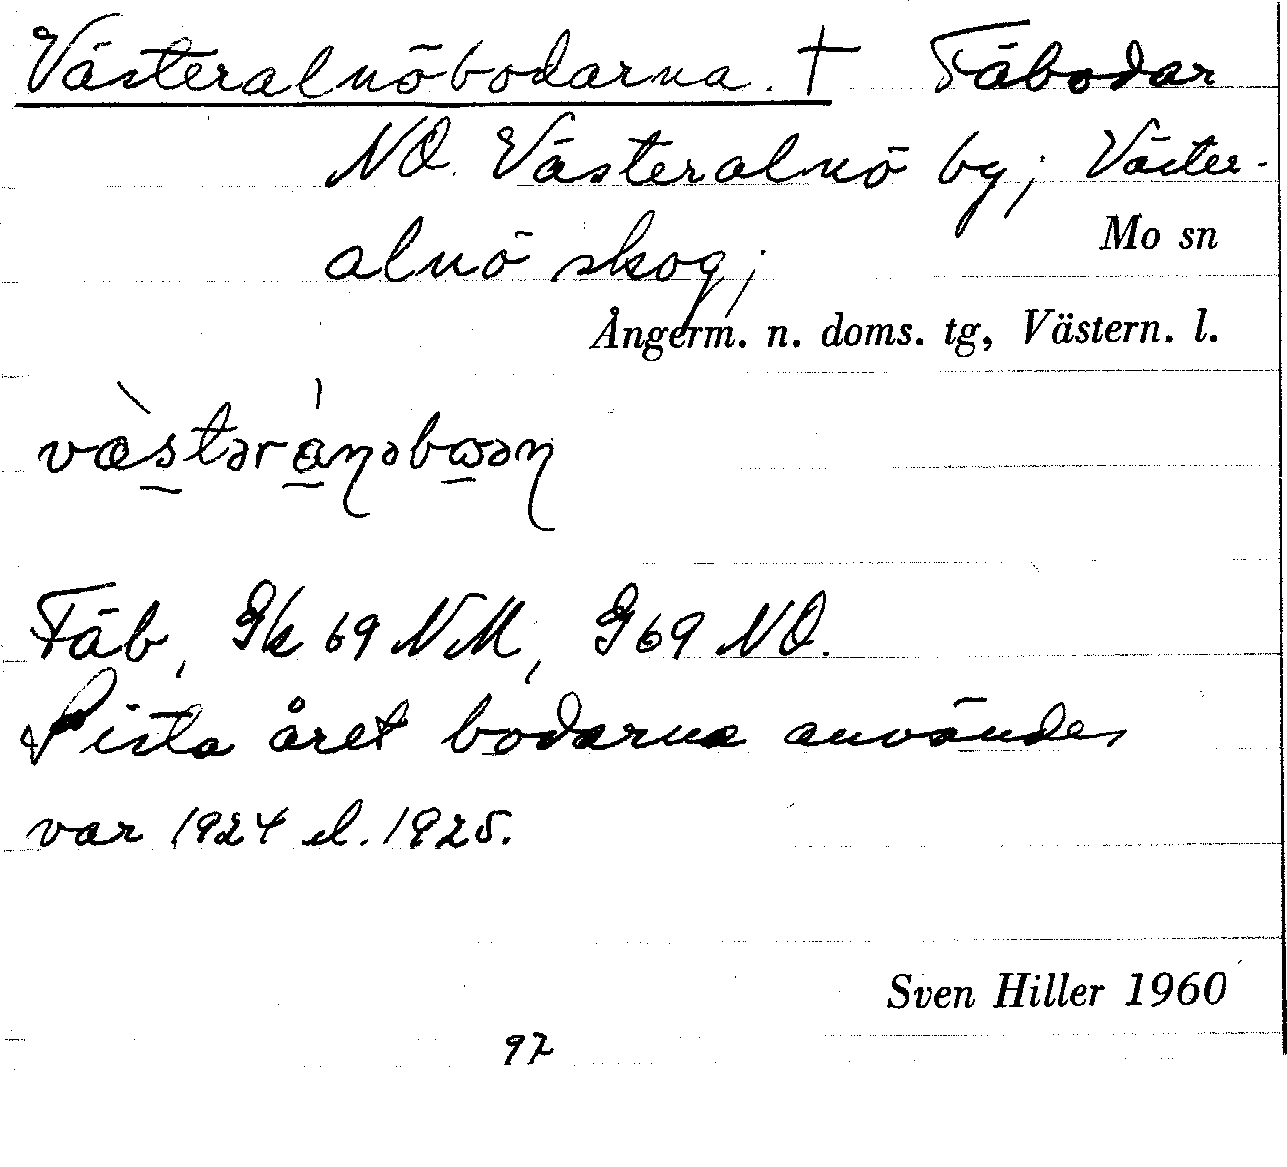 Västeralnöbodarna. † Fäbodar
NO. Västeralnö by; Väster-
alnö skog;
Mo sn
Ångerm. n. doms. tg, Västern. l.
Fäb, Gk 69 NM, G 69 NO.
Sista året bodarna användes
var 1924 el. 1925.
Sven Hiller 1960
97